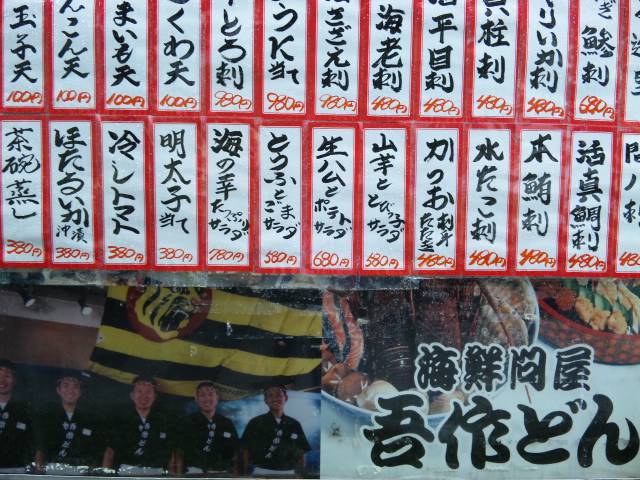 玉子天
100円
こん天
100円
まいも天
100円
くわ天
100円
とろ刺
980円
うに当て
980円
さざえ刺
980円
海老刺
480円
平目刺
480円
貝柱刺
480円
りいか刺
480円
鯵刺
680円
茶碗蒸し
380円
ほたるいか沖漬
380円
冷しトマト
380円
明太子当て
380円
海の幸たっぷりサラダ
780円
とうふとごまサラダ
580円
生ハムとポテトサラダ
680円
山芋ととびっ子サラダ
580円
かつお刺身たたき
480円
水たこ刺
480円
本鮪刺
480円
活真鯛刺
480円
海鮮問屋
吾作どん